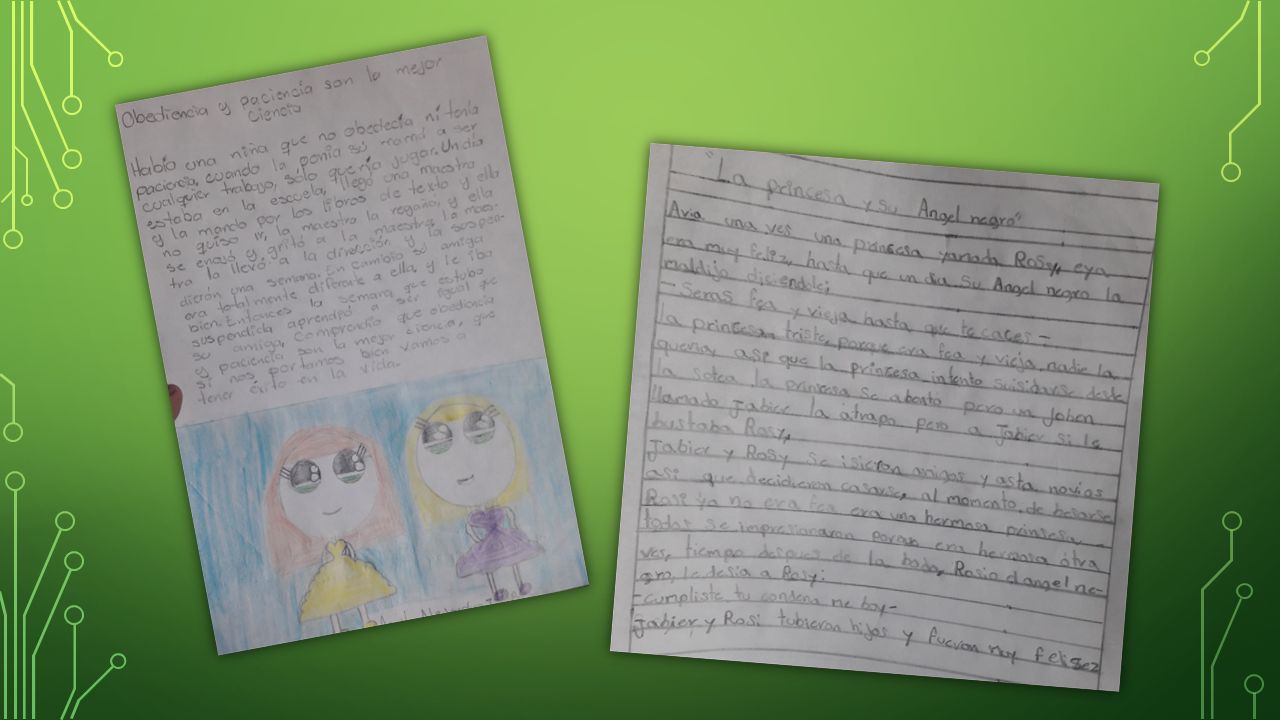 Obediencia y paciencia son la mejor
ciencia
Había una niña que no obedecía ni tenía
paciencia, cuando la ponía su mamá a ser
cualquier trabajo, sólo quería jugar. Un día
estaba en la escuela, llegó una maestra
y la mando por los libros de texto y ella
no quiso, la maestra la regaño, y ella
se enojó y gritó a la maestra, la maes-
tra la llevó a la dirección y la suspen-
dieron una semana. En cambio su amiga
era totalmente diferente a ella, y le iba
bien. Entonces la semana que estaba
suspendida aprendió a ser igual que
su amiga, comprendio que obediencia
y paciencia son la mejor ciencia, que
si nos portamos bien vamos a
tener éxito en la vida.
"La princesa y su Angel negro"
Avia una ves una prinsesa yamada Rosy, eya
era muy feliz, hasta que un dia su Angel negro la
maldijo diciendole;
- Seras fea y vieja hasta que te cases -
la princesa triste, porque era fea y vieja, nadie la
queria, asi que la princesa intento suisidarse desde
la sotea, la princesa se abento pero un joben
llamado Jabier la atrapo pero a Jabier si le
bustaba Rosy,
Jabier y Rosy se isieron amigos y asta novios
asi que decidieron casarse, al momento de besarse
Rosi ya no era fea era una hermosa prinsesa
todos se impresionaron porque era hermosa otra
ves, tiempo despues de la boda, Rosio el angel ne-
gro, le desia a Rosy:
- cumpliste tu condena me boy -
Jabier y Rosi tubieron hijos y fueron muy felisez